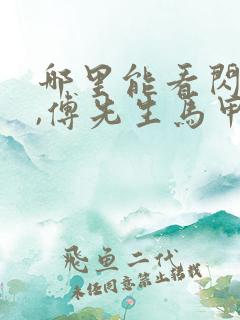 哪里能看閃
,傅先生馬甲
飛魚二代
未经同意禁止轉載